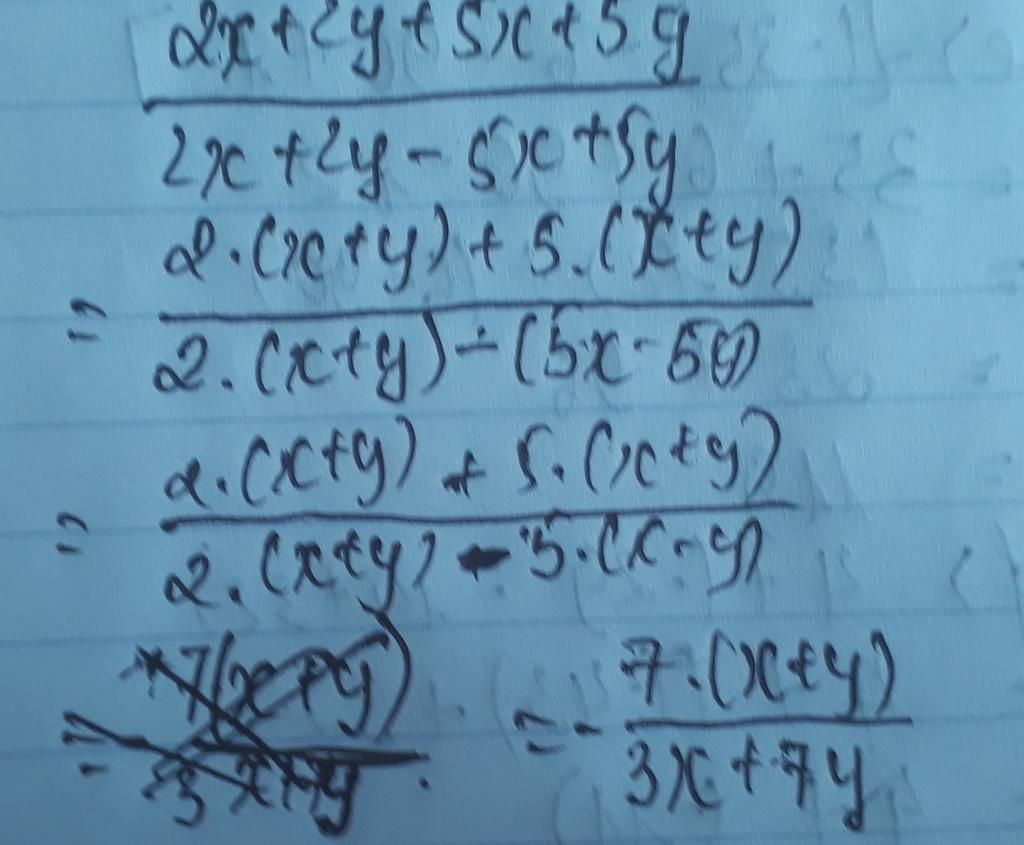 2x+2y+5x+5y
2x+2y-5x+5y
= 2.(x+y)+5.(x+y)
2.(x+y)-(5x-5y)
= 2.(x+y)+5.(x+y)
2.(x+y)-5.(x-y)
= 7(x+y) =- 7.(x+y)
3x+7y